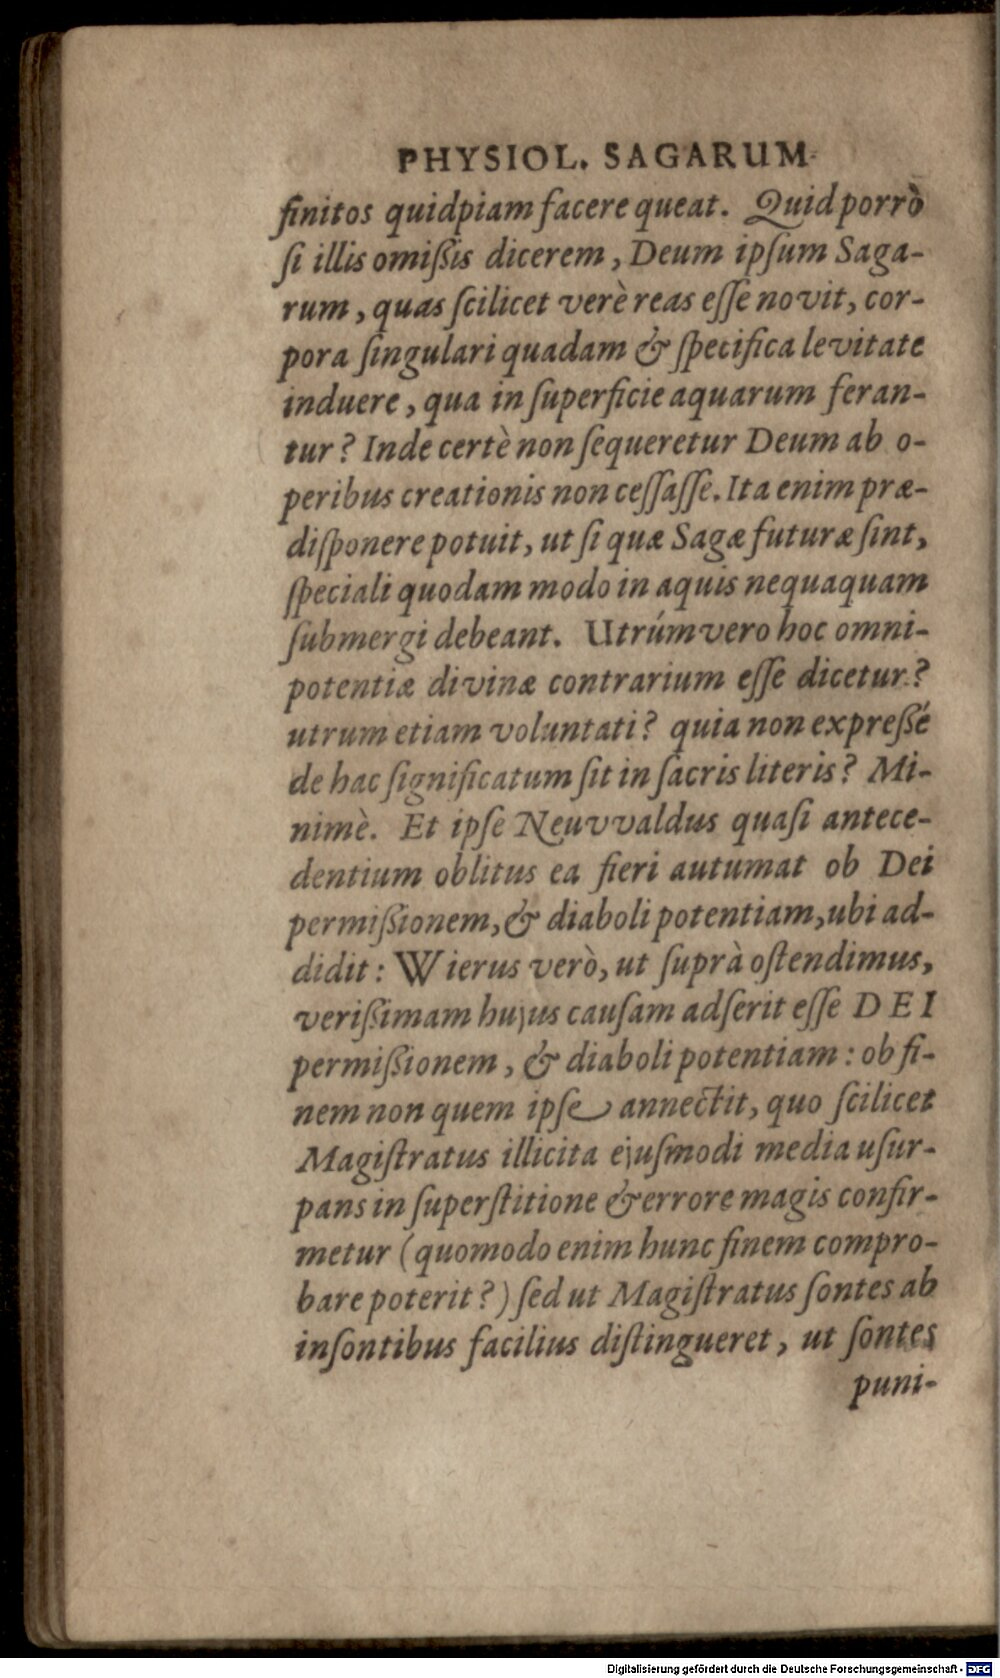 PHYSIOL. SAGARUM
finitos quidpiam facere queat. Quid porrò
ſi illis omiſsis dicerem, Deum ipſum Saga-
rum, quas ſcilicet verè reas eſſe novit, cor-
pora ſingulari quadam & ſpecifica levitate
induere, qua in ſuperficie aquarum feran-
tur? Inde certè non ſequeretur Deum ab o-
peribus creationis non ceſſaſſe. Ita enim præ-
diſponere potuit, ut ſi quæ Sagæ futuræ ſint,
ſpeciali quodam modo in aquis nequaquam
ſubmergi debeant. Utrúm vero hoc omni-
potentiæ divinæ contrarium eſſe dicetur?
utrum etiam voluntati? quia non expreſsé
de hac ſignificatum ſit in ſacris literis? Mi-
nimè. Et ipſe Neuvvaldus quaſi antece-
dentium oblitus ea fieri autumat ob Dei
permiſsionem, & diaboli potentiam, ubi ad-
didit: Wierus verò, ut ſuprà oſtendimus,
veriſsimam hujus cauſam adſerit eſſe DEI
permiſsionem, & diaboli potentiam: ob fi-
nem non quem ipſe annectit, quo ſcilicet
Magiſtratus illicita ejuſmodi media uſur-
pans in ſuperſtitione & errore magis confir-
metur (quomodo enim hunc finem compro-
bare poterit?) ſed ut Magiſtratus ſontes ab
inſontibus facilius diſtingueret, ut ſontes
puni-
Digitalisierung gefördert durch die Deutsche Forschungsgemeinschaft - DFG